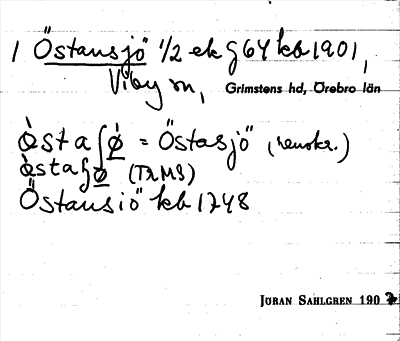 1 Östansjö 1/2 ek g 64 kb 1901,
Viby sn, Grimstens hd, Örebro län
òsta∫ø̀ = Östasjö (renskr.)
òstaʃø (TRMS)
Östansiö kb 1748
JÖRAN SAHLGREN 190